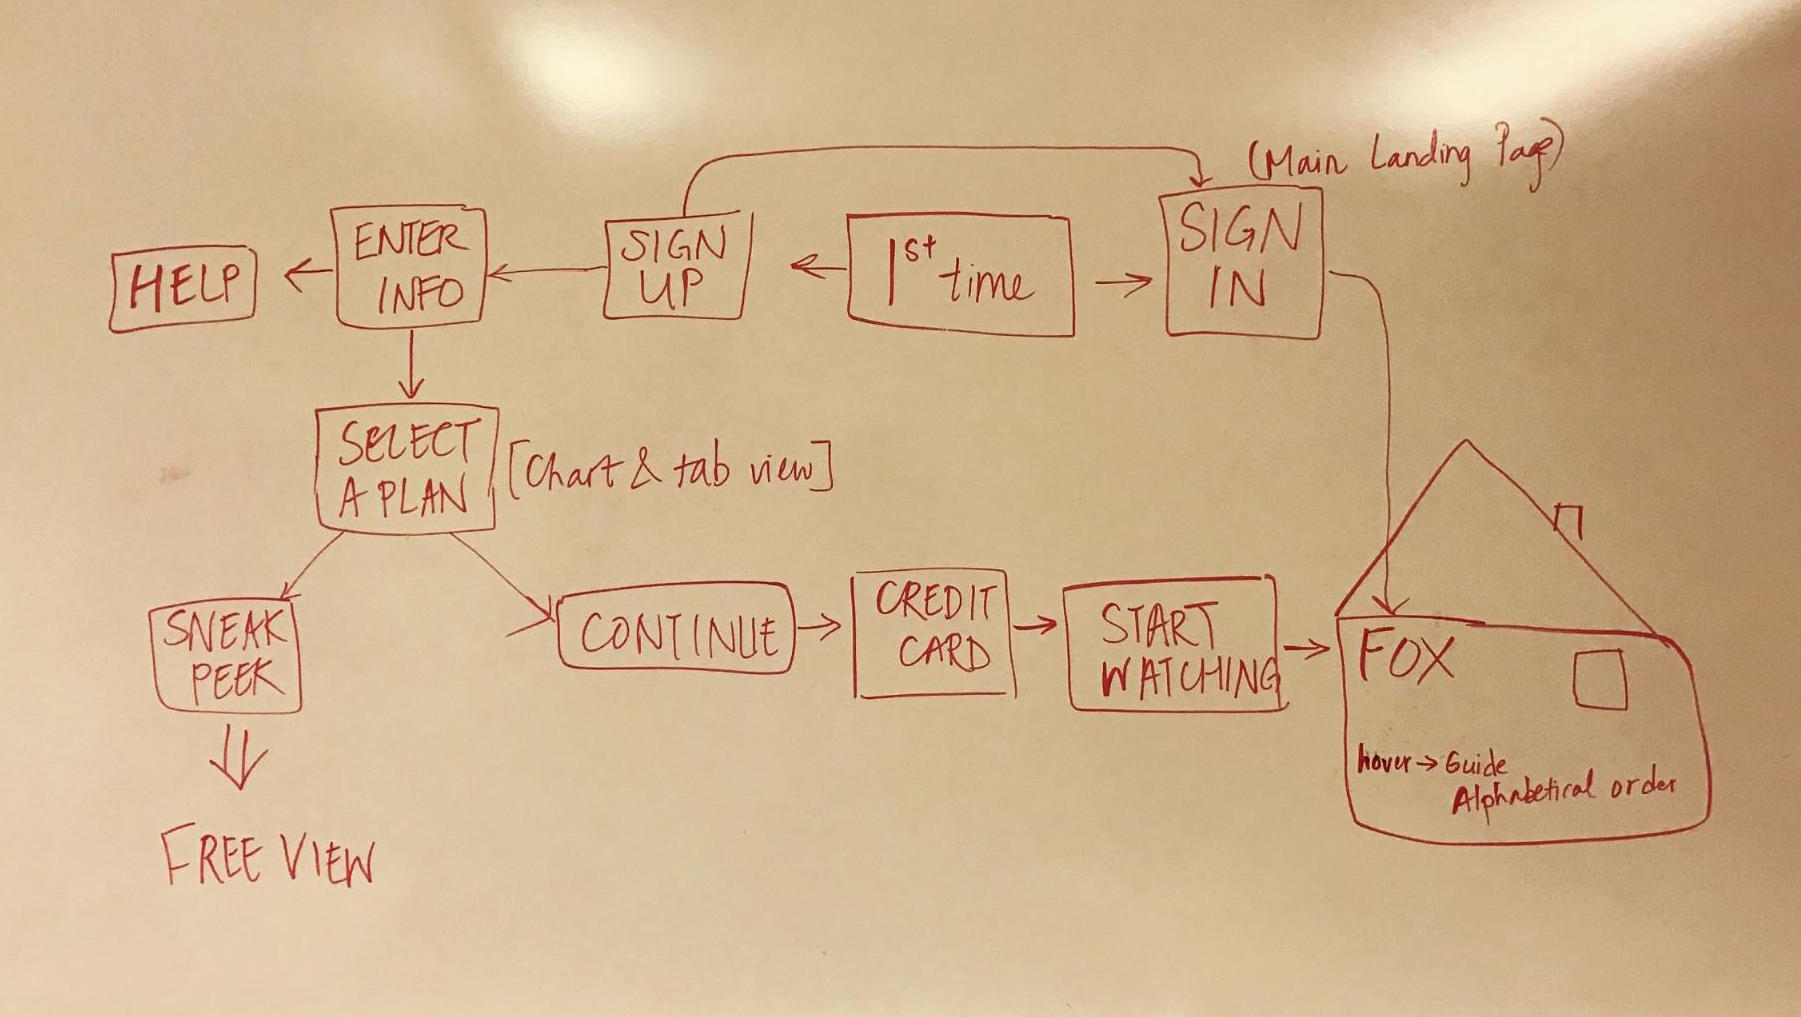 (Main Landing Page)
HELP
ENTER
INFO
SIGN
UP
1st time
SIGN
IN
SELECT
A PLAN
[Chart & tab view]
SNEAK
PEEK
CONTINUE
CREDIT
CARD
START
WATCHING
FOX
hover → Guide
Alphabetical order
FREE VIEW